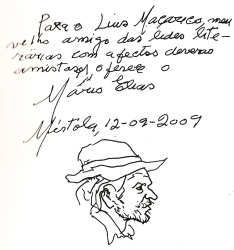 Para o Luis Maçarico, meu
velho amigo das lides lite-
rárias com afectos deveras
amistosos, oferece o
Mário Elias
Mértola, 12-09-2009